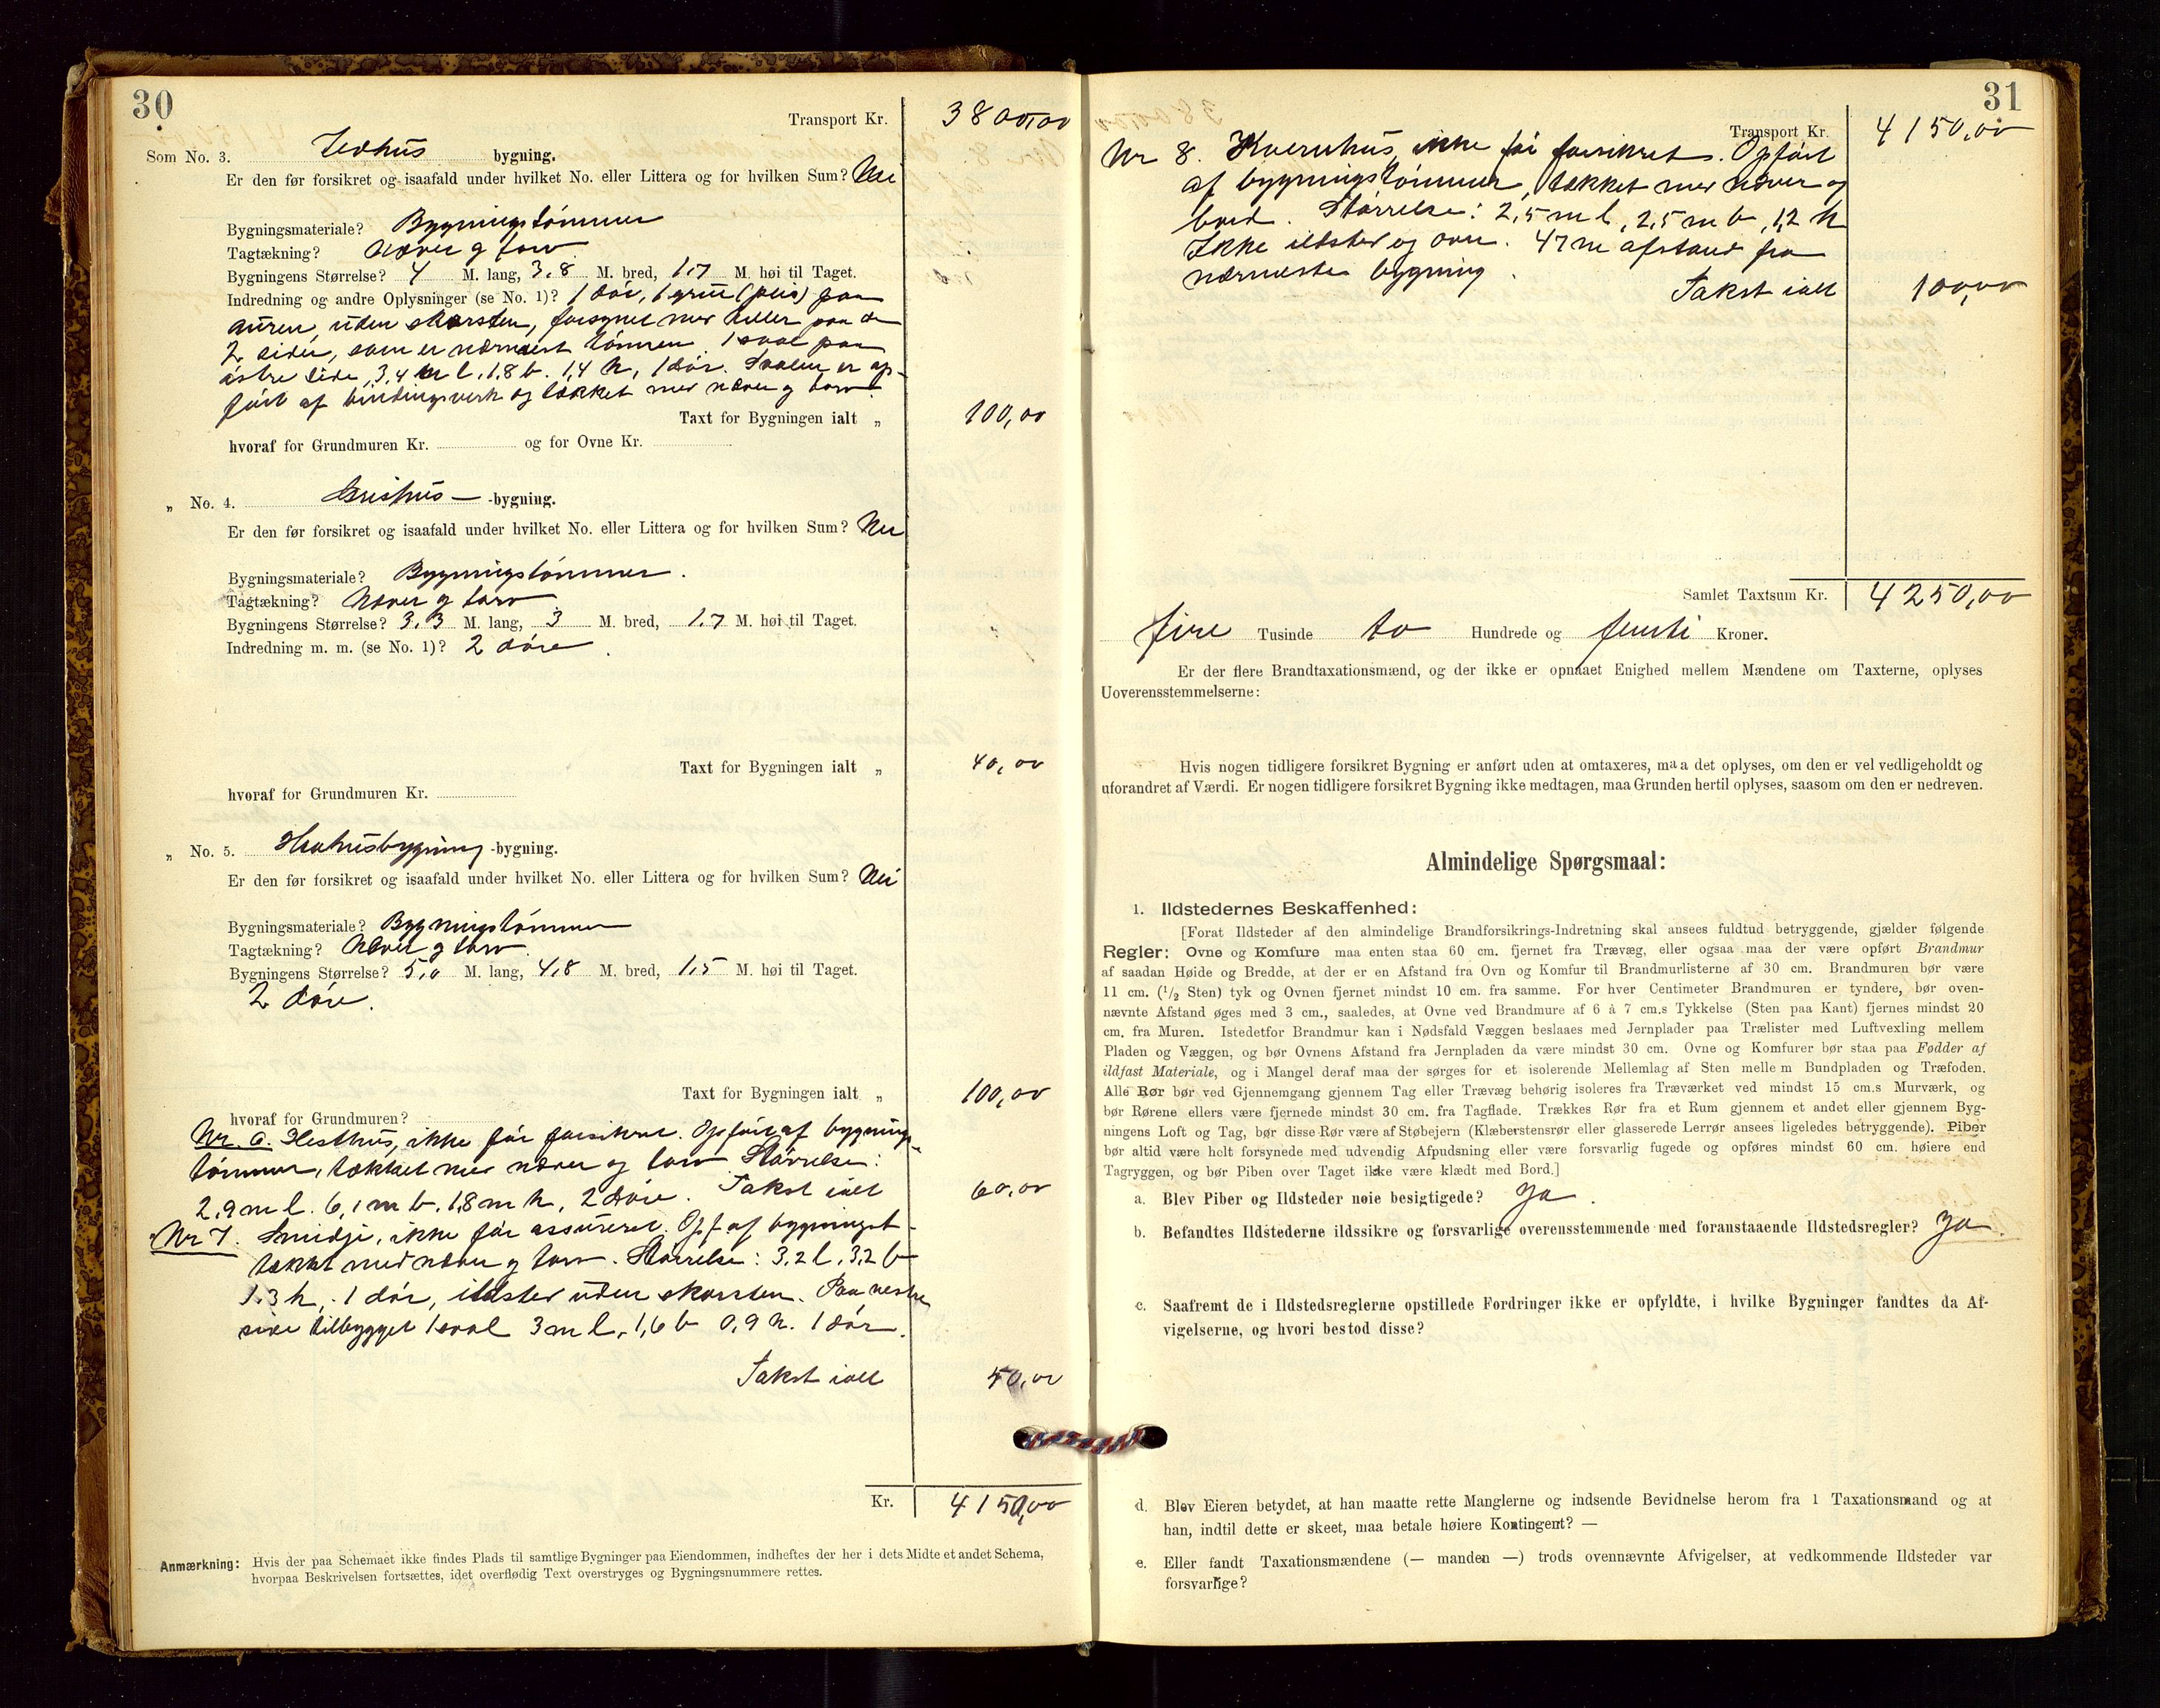 30
Transport Kr. 3800,00
Som No. 3. Ildhus bygning.
Er den før forsikret og isaafald under hvilket No. eller Littera og for hvilken Sum? Nei
Bygningsmateriale? Bygningstømmer
Tagtækning? Næver og torv
Bygningens Størrelse? 4 M. lang, 3,8 M. bred, 1,7 M. høi til Taget.
Indredning og andre Oplysninger (se No. 1)? 1 dør, 1 grue (peis) paa
auren, uden skorsten, forsynet med heller paa de
2 sider, som er nærmest tømren. 1 sval paa
østre side, 3,4 m l. 1,8 b. 1,4 h, 1 dør. Svalen er op-
ført af bindingsverk og tækket med næver og torv.
Taxt for Bygningen ialt „ 100,00
hvoraf for Grundmuren Kr. og for Ovne Kr.
„ No. 4. Grishus -bygning.
Er den før forsikret og isaafald under hvilket No. eller Littera og for hvilken Sum? Nei
Bygningsmateriale? Bygningstømmer.
Tagtækning? Næver og torv
Bygningens Størrelse? 3,3 M. lang, 3 M. bred, 1,7 M. høi til Taget.
Indredning m. m. (se No. 1)? 2 døre.
Taxt for Bygningen ialt „ 40,00
hvoraf for Grundmuren Kr.
„ No. 5. -bygning.
Er den før forsikret og isaafald under hvilket No. eller Littera og for hvilken Sum? Nei
Bygningsmateriale? Bygningstømmer
Tagtækning? Næver og torv.
Bygningens Størrelse? 5,0 M. lang, 4,8 M. bred, 1,5 M. høi til Taget.
2 døre.
Taxt for Bygningen ialt „ 100,00
hvoraf for Grundmuren?
Nr. 6. Hesthus, ikke før forsikret. Opført af bygnings-
tømmer, tækket med næver og torv. Størrelse:
2,9 m l. 6,1 m b. 1,8 m h, 2 døre. Takst ialt 60,00
Nr 7. Smidje, ikke før assureret. Opf. af bygningst-
tækket med næver og torv. Størrelse: 3,2 l, 3,2 b
1,3 h, 1 dør, ildsted uden skorsten. Paa vestre
side tilbygget 1 sval 3 m l, 1,6 b 0,9 h. 1 dør.
Takst ialt 50,00
Kr. 4150,00
Anmærkning: Hvis der paa Schemaet ikke findes Plads til samtlige Bygninger paa Eiendommen, indheftes der her i dets Midte et andet Schema,
hvorpaa Beskrivelsen fortsættes, idet overflødig Text overstryges og Bygningsnummere rettes.
31
Transport Kr. 4150,00
Nr 8. Kvernhus, ikke før forsikret. Opført
af bygningstømmer, tækket med næver og
bord. Størrelse: 2,5 m l, 2,5 m b, 1,2 h
Ikke ildsted og ovn. 47 m afstand fra
nærmeste bygning.
Takst ialt 100,00
Samlet Taxtsum Kr. 4250,00
fire Tusinde to Hundrede og femti Kroner.
Er der flere Brandtaxationsmænd, og der ikke er opnaaet Enighed mellem Mændene om Taxterne, oplyses
Uoverensstemmelserne:
Hvis nogen tidligere forsikret Bygning er anført uden at omtaxeres, maa det oplyses, om den er vel vedligeholdt og
uforandret af Værdi. Er nogen tidligere forsikret Bygning ikke medtagen, maa Grunden hertil oplyses, saasom om den er nedreven.
Almindelige Spørgsmaal:
1. Ildstedernes Beskaffenhed:
[Forat Ildsteder af den almindelige Brandforsikrings-Indretning skal ansees fuldtud betryggende, gjælder følgende
Regler: Ovne og Komfure maa enten staa 60 cm. fjernet fra Trævæg, eller ogsaa maa der være opført Brandmur
af saadan Høide og Bredde, at der er en Afstand fra Ovn og Komfur til Brandmurlisterne af 30 cm. Brandmuren bør være
11 cm. (1/2 Sten) tyk og Ovnen fjernet mindst 10 cm. fra samme. For hver Centimeter Brandmuren er tyndere, bør oven-
nævnte Afstand øges med 3 cm., saaledes, at Ovne ved Brandmure af 6 à 7 cm.s Tykkelse (Sten paa Kant) fjernes mindst 20
cm. fra Muren. Istedetfor Brandmur kan i Nødsfald Væggen beslaaes med Jernplader paa Trælister med Luftvexling mellem
Pladen og Væggen, og bør Ovnens Afstand fra Jernpladen da være mindst 30 cm. Ovne og Komfurer bør staa paa Fødder af
ildfast Materiale, og i Mangel deraf maa der sørges for et isolerende Mellemlag af Sten mellem Bundpladen og Træfoden.
Alle Rør bør ved Gjennemgang gjennem Tag eller Trævæg behørig isoleres fra Træværket ved mindst 15 cm.s Murværk, og
bør Rørene ellers være fjernede mindst 30 cm. fra Tagflade. Trækkes Rør fra et Rum gjennem et andet eller gjennem Byg-
ningens Loft og Tag, bør disse Rør være af Støbejern (Klæberstensrør eller glasserede Lerrør ansees ligeledes betryggende). Piber
bør altid være holt forsynede med udvendig Afpudsning eller være forsvarlig fugede og opføres mindst 60 cm. høiere end
Tagryggen, og bør Piben over Taget ikke være klædt med Bord.]
a. Blev Piber og Ildsteder nøie besigtigede? Ja.
b. Befandtes Ildstederne ildssikre og forsvarlige overensstemmende med foranstaaende Ildstedsregler? Ja.
c. Saafremt de i Ildstedsreglerne opstillede Fordringer ikke er opfyldte, i hvilke Bygninger fandtes da Af-
vigelserne, og hvori bestod disse?
d. Blev Eieren betydet, at han maatte rette Manglerne og indsende Bevidnelse herom fra 1 Taxationsmand og at
han, indtil dette er skeet, maa betale høiere Kontingent? —
e. Eller fandt Taxationsmændene (— manden —) trods ovennævnte Afvigelser, at vedkommende Ildsteder var
forsvarlige?